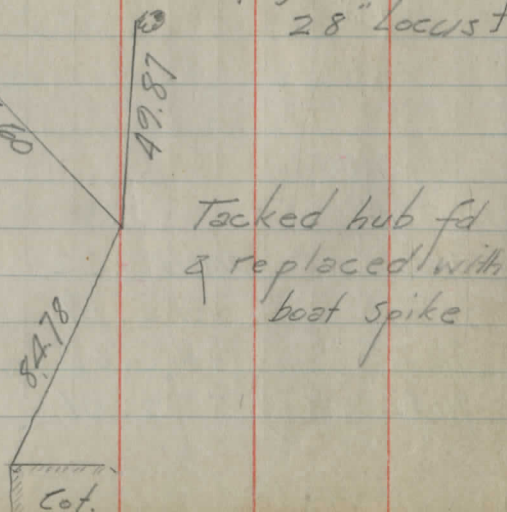 28" Locust
49.87
Tacked hub fd
& replaced with
boat spike
84.78
Cot.